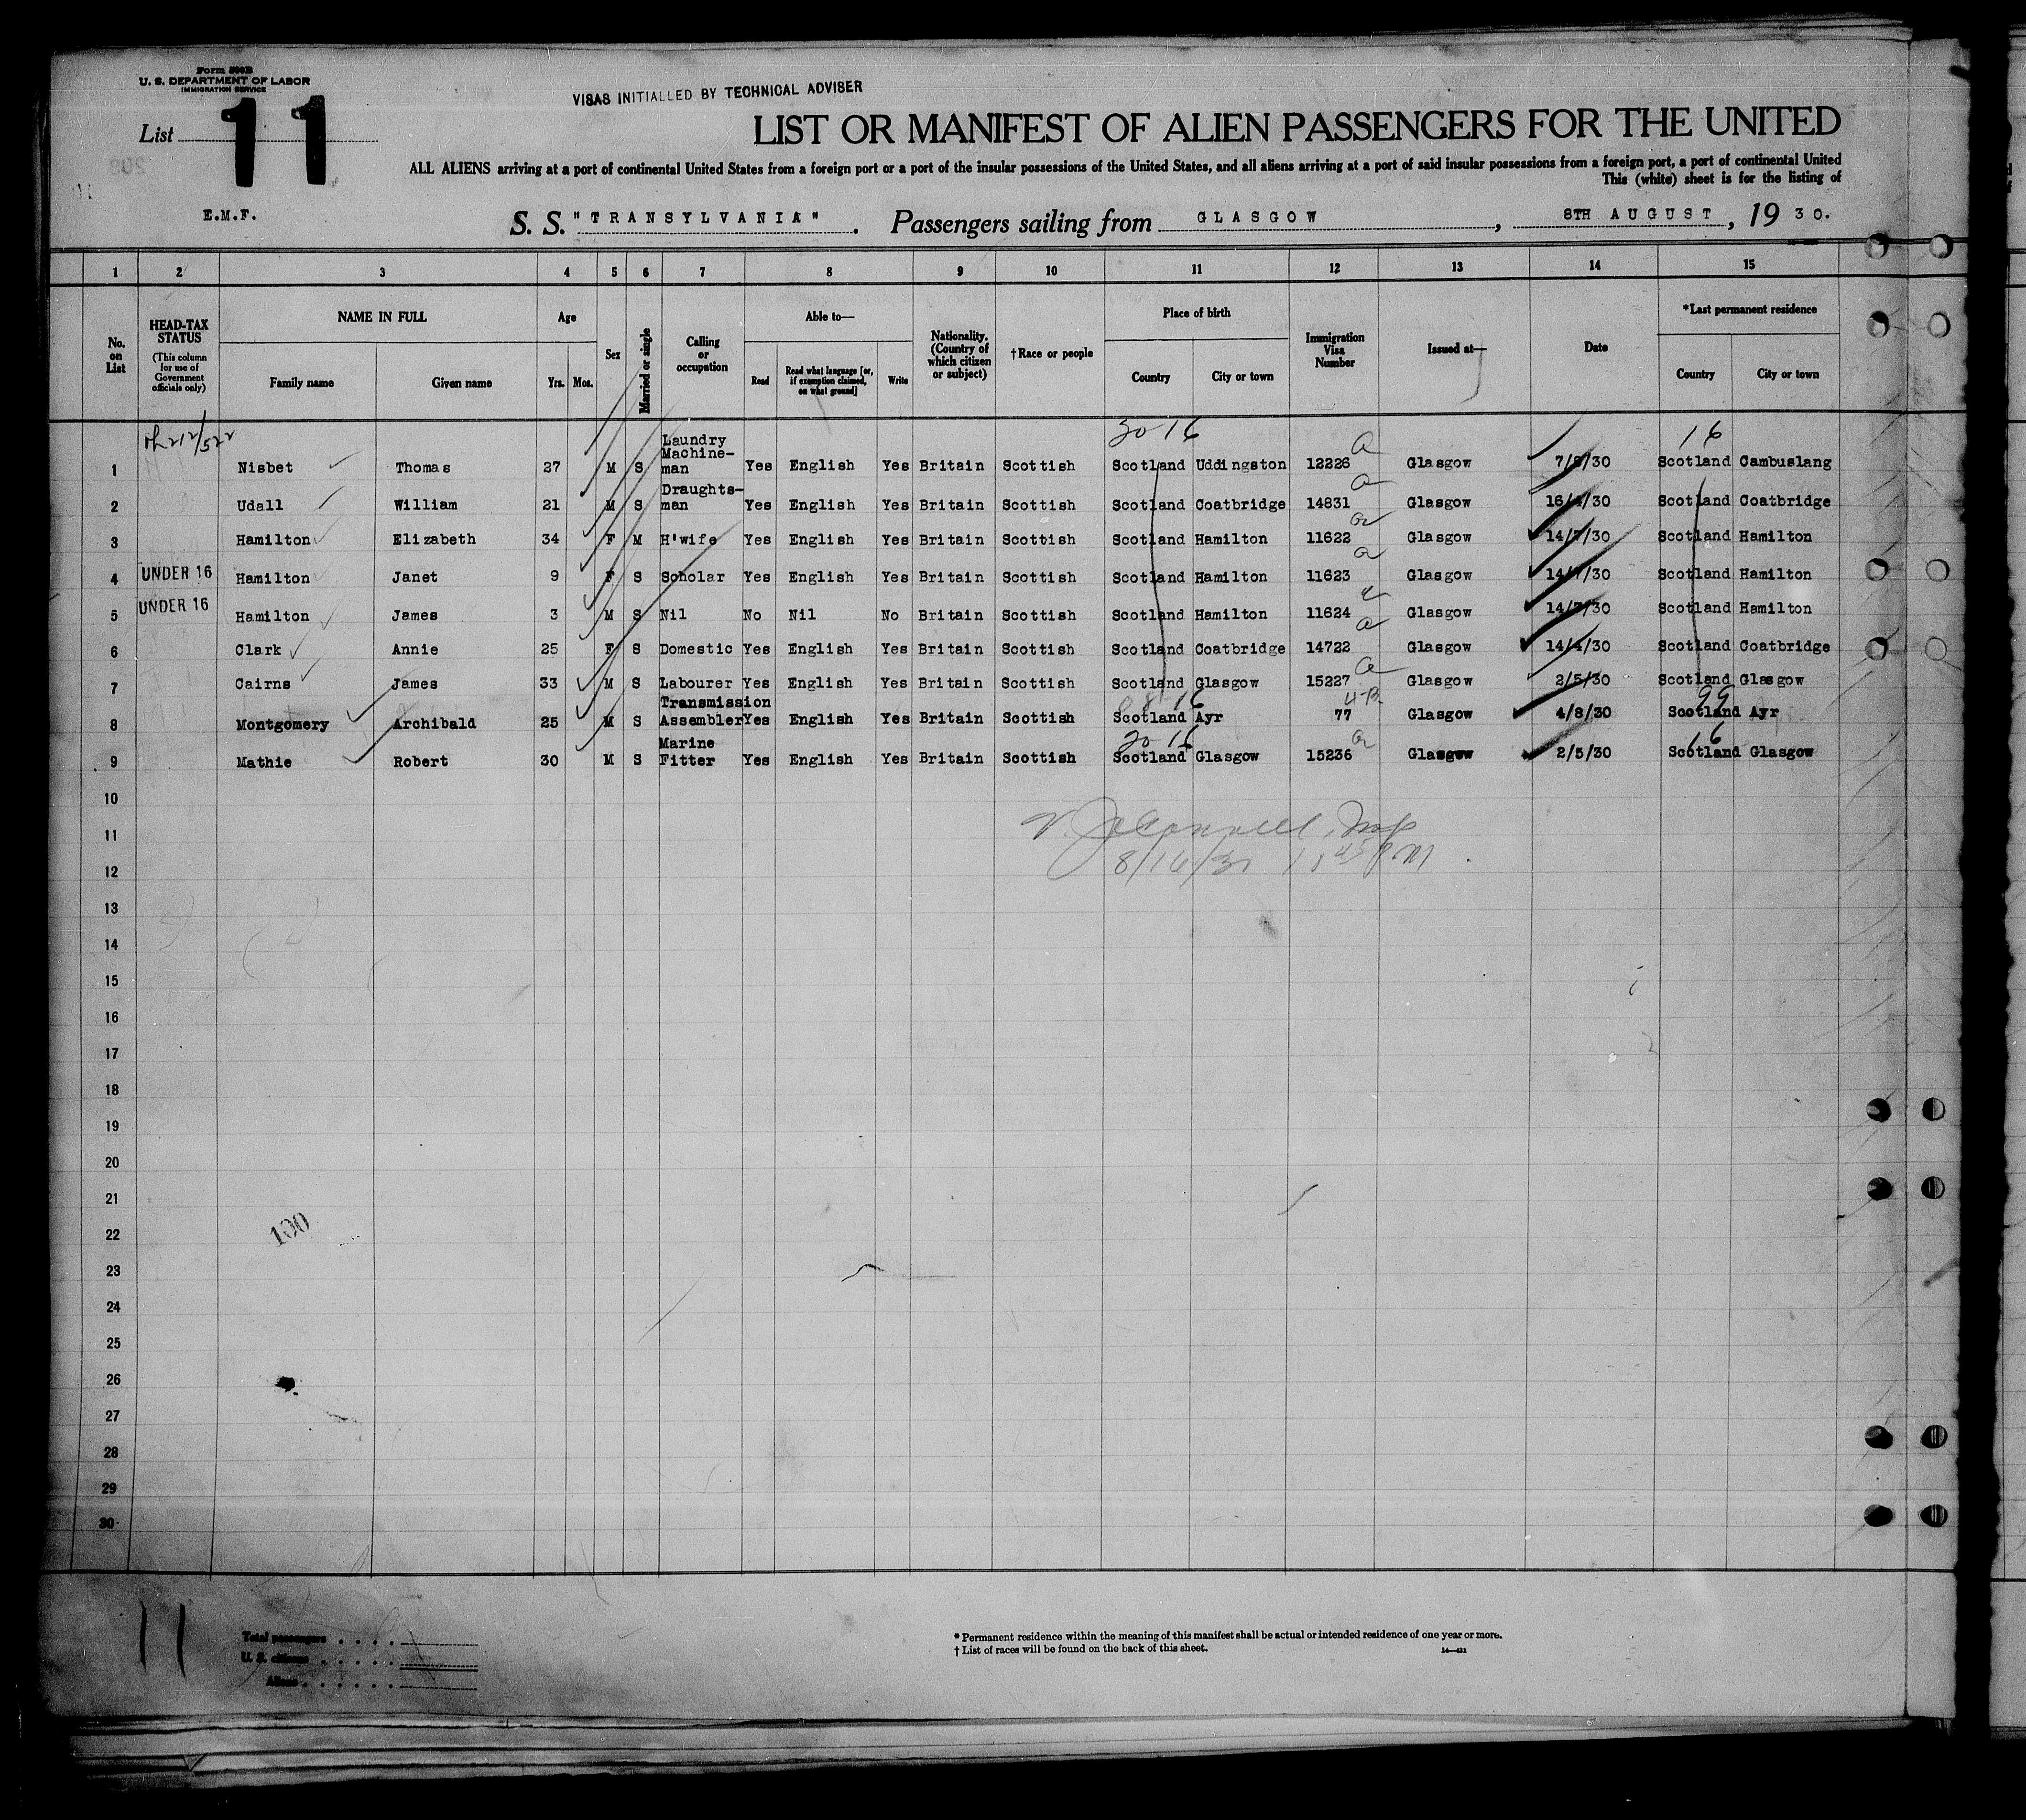 Form 500B
U. S. DEPARTMENT OF LABOR
IMMIGRATION SERVICE
VISAS INITIALLED BY TECHNICAL ADVISER
List 11
LIST OR MANIFEST OF ALIEN PASSENGERS FOR THE UNITED
ALL ALIENS arriving at a port of continental United States from a foreign port or a port of the insular possessions of the United States, and all aliens arriving at a port of said insular possessions from a foreign port, a port of continental United
This (white) sheet is for the listing of
E.M.F.
S. S. "TRANSYLVANIA". Passengers sailing from GLASGOW, 8TH AUGUST, 1930.
1 2 3 4 5 6 7 8 9 10 11 12 13 14 15
No. on List
HEAD-TAX STATUS
(This column for use of Government officials only)
NAME IN FULL
Family name Given name
Age
Yrs. Mos.
Sex
Married or single
Calling or occupation
Able to—
Read
Read what language [or, if exemption claimed, on what ground]
Write
Nationality. (Country of which citizen or subject)
†Race or people
Place of birth
Country City or town
Immigration Visa Number
Issued at—
Date
*Last permanent residence
Country City or town
30 16 16
1 Nisbet Thomas 27 M S Laundry Machine-man Yes English Yes Britain Scottish Scotland Uddingston 12226 Glasgow 7/ /30 Scotland Cambuslang
2 Udall William 21 M S Draughts-man Yes English Yes Britain Scottish Scotland Coatbridge 14831 Glasgow 16/4/30 Scotland Coatbridge
3 Hamilton Elizabeth 34 F M H'wife Yes English Yes Britain Scottish Scotland Hamilton 11622 Glasgow 14/7/30 Scotland Hamilton
4 UNDER 16 Hamilton Janet 9 F S Scholar Yes English Yes Britain Scottish Scotland Hamilton 11623 Glasgow 14/7/30 Scotland Hamilton
5 UNDER 16 Hamilton James 3 M S Nil No Nil No Britain Scottish Scotland Hamilton 11624 Glasgow 14/7/30 Scotland Hamilton
6 Clark Annie 25 F S Domestic Yes English Yes Britain Scottish Scotland Coatbridge 14722 Glasgow 14/4/30 Scotland Coatbridge
7 Cairns James 33 M S Labourer Yes English Yes Britain Scottish Scotland Glasgow 15227 Glasgow 2/5/30 Scotland Glasgow
8 Montgomery Archibald 25 M S Transmission Assembler Yes English Yes Britain Scottish Scotland Ayr 77 Glasgow 4/8/30 Scotland Ayr
9 Mathie Robert 30 M S Marine Fitter Yes English Yes Britain Scottish Scotland Glasgow 15236 Glasgow 2/5/30 Scotland Glasgow
10
11
12
13
14
15
16
17
18
19
20
21
22
23
24
25
26
27
28
29
30
100
11
Total passengers
U. S. citizens
Aliens
* Permanent residence within the meaning of this manifest shall be actual or intended residence of one year or more.
† List of races will be found on the back of this sheet.